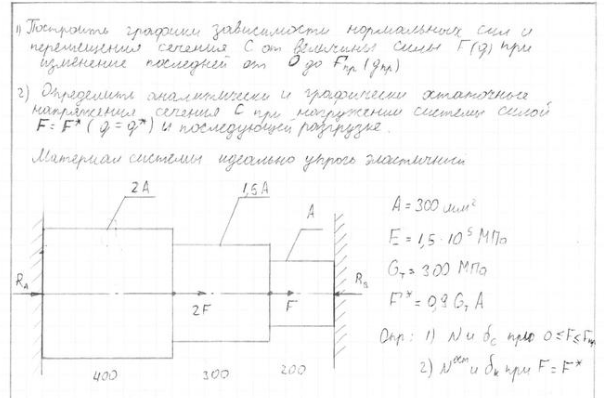 1) Построить графики зависимости нормальных сил и
перемещения сечения С от величины силы F(q) при
изменение последней от 0 до Fпр (qпр)
2) Определить аналитически и графически остаточные
напряжения сечения С при нагружении системы силой
F = F* (q = q*) и последующей разгрузке.
Материал системы идеально упруго пластичный
2A
1,5A
A
RA
2F
F
RB
400
300
200
A = 300 мм²
E = 1,5 · 10⁵ МПа
Gт = 300 МПа
F* = 0,9 Gт A
Опр: 1) N и δc при 0 ≤ F ≤ Fпр
2) Nост и δк при F = F*